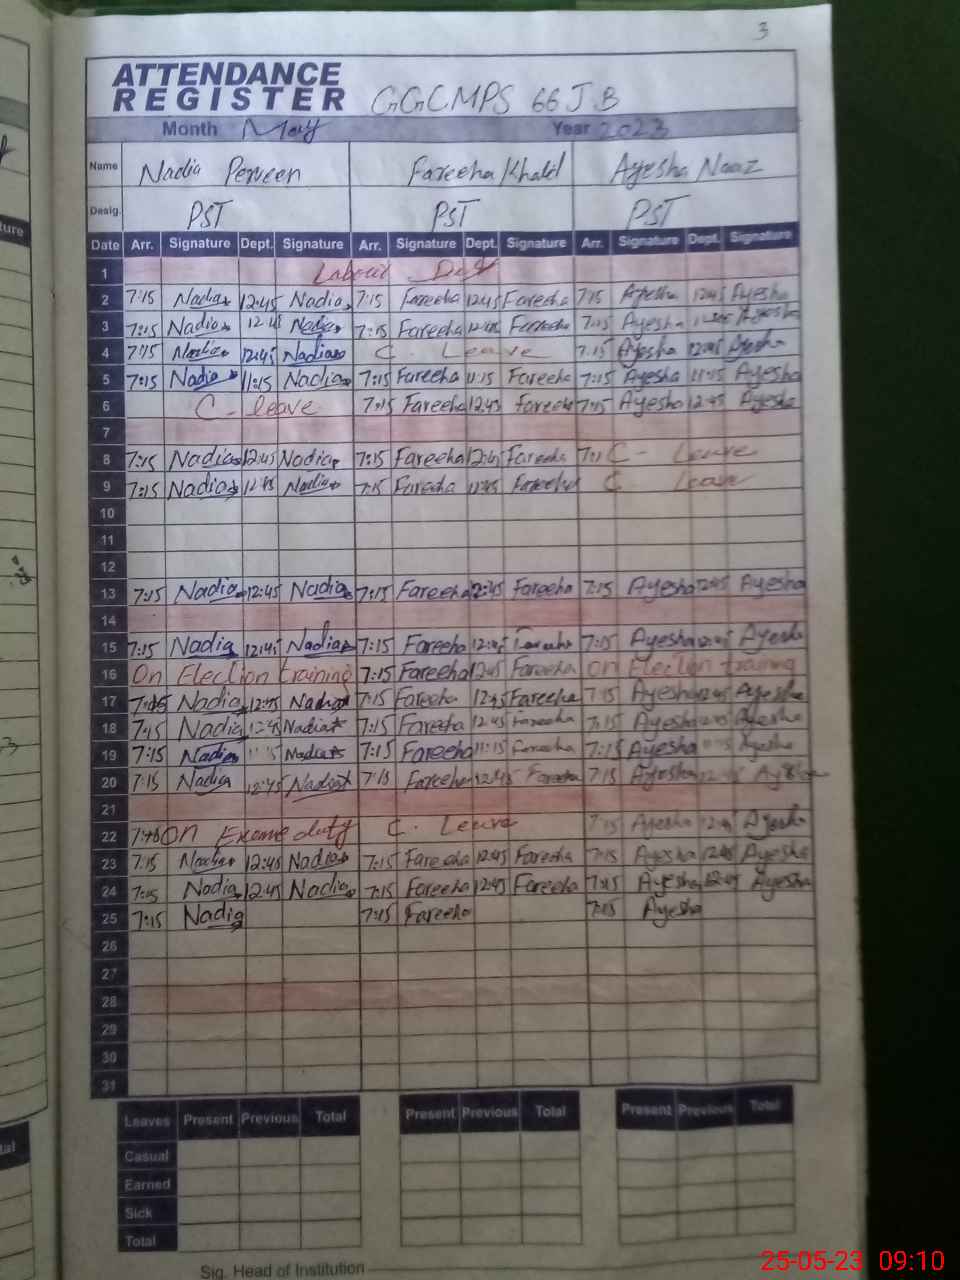 3
ATTENDANCE
REGISTER GGCMPS 66 J.B
Month May Year 2023
Name Nadia Perveen Fareeha Khalid Ayesha Naaz
Desig. PST PST PST
Date Arr. Signature Dept. Signature Arr. Signature Dept. Signature Arr. Signature Dept. Signature
1 Labour Day
2 7:15 Nadia 12:45 Nadia 7:15 Fareeha 12:45 Fareeha 7:15 Ayesha 12:45 Ayesha
3 7:15 Nadia 12:45 Nadia 7:15 Fareeha 12:45 Fareeha 7:15 Ayesha Ayesha
4 7:15 Nadia 12:45 Nadia C. Leave 7:15 Ayesha 12:45 Ayesha
5 7:15 Nadia 11:15 Nadia 7:15 Fareeha 11:15 Fareeha 7:15 Ayesha 11:15 Ayesha
6 C- leave 7:15 Fareeha 12:45 Fareeha 7:15 Ayesha 12:45 Ayesha
7
8 7:15 Nadia 12:45 Nadia 7:15 Fareeha 12:45 Fareeha 7:1 C - Leave
9 7:15 Nadia 12:45 Nadia 7:15 Fareeha 12:45 Fareeha C. Leave
10
11
12
13 7:15 Nadia 12:45 Nadia 7:15 Fareeha 12:45 Fareeha 7:15 Ayesha 12:45 Ayesha
14
15 7:15 Nadia 12:45 Nadia 7:15 Fareeha 12:45 Fareeha 7:15 Ayesha 12:45 Ayesha
16 On Election training 7:15 Fareeha 12:45 Fareeha on Election training
17 7:15 Nadia 12:45 Nadia 7:15 Fareeha 12:45 Fareeha 7:15 Ayesha 12:45 Ayesha
18 7:15 Nadia 12:45 Nadia 7:15 Fareeha 12:45 Fareeha 7:15 Ayesha 12:45 Ayesha
19 7:15 Nadia 11:15 Nadia 7:15 Fareeha 11:15 Fareeha 7:15 Ayesha 11:15 Ayesha
20 7:15 Nadia 12:45 Nadia 7:15 Fareeha 12:45 Fareeha 7:15 Ayesha 12:45 Ayesha
21
22 On Exame duty C. Leave 7:15 Ayesha 12:45 Ayesha
23 7:15 Nadia 12:45 Nadia 7:15 Fareeha 12:45 Fareeha 7:15 Ayesha 12:45 Ayesha
24 7:15 Nadia 12:45 Nadia 7:15 Fareeha 12:45 Fareeha 7:45 Ayesha 12:45 Ayesha
25 7:15 Nadia 7:15 Fareeha 7:15 Ayesha
26
27
28
29
30
31
Leaves Present Previous Total Present Previous Total Present Previous Total
Casual
Earned
Sick
Total
Sig. Head of Institution
25-05-23 09:10